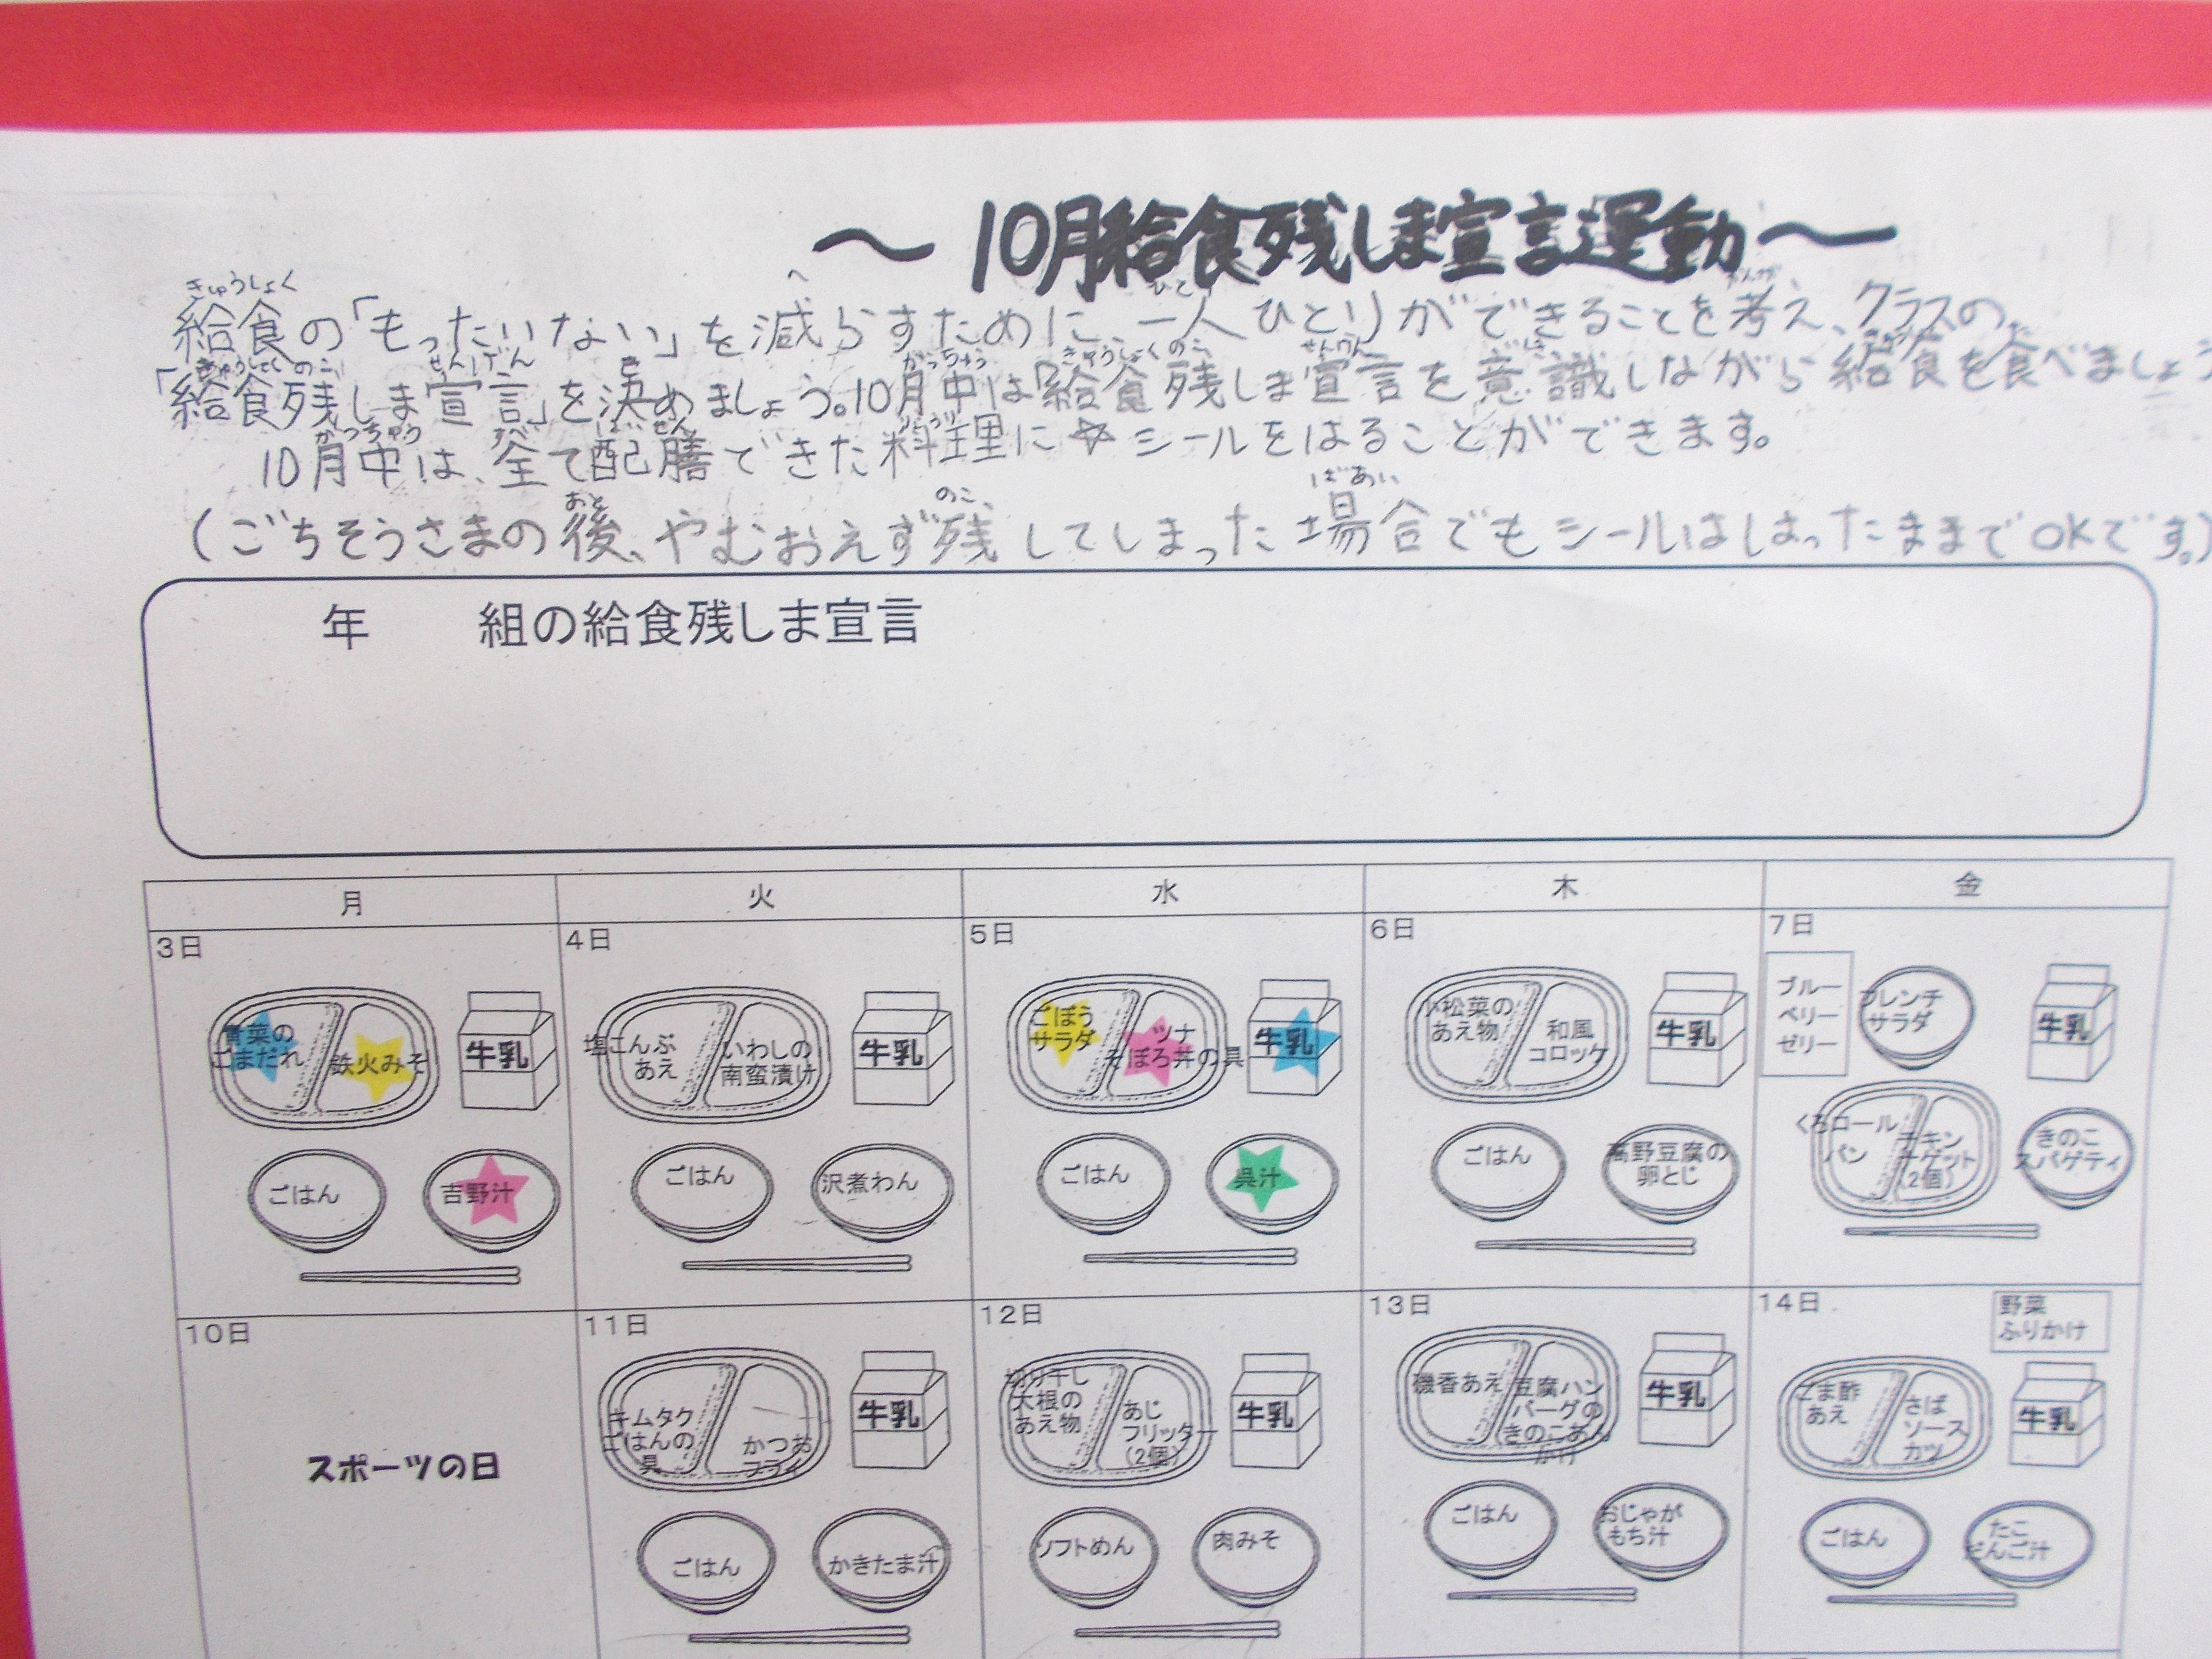 ～10月給食残しま宣言運動～
給食の「もったいない」を減らすために、一人ひとりができることを考え、クラスの
「給食残しま宣言」を決めましょう。10月中は「給食残しま宣言を意識しながら給食を食べましょう
10月中は、全て配膳できた料理に☆シールをはることができます。
(ごちそうさまの後、やむおえず残してしまった場合でもシールははったままでOKです。)
年 組の給食残しま宣言
月 火 水 木 金
3日
青菜の
ごまだれ
鉄火みそ
牛乳
ごはん
吉野汁
4日
塩こんぶ
あえ
いわしの
南蛮漬け
牛乳
ごはん
沢煮わん
5日
ごぼう
サラダ
ツナ
そぼろ丼の具
牛乳
ごはん
呉汁
6日
小松菜の
あえ物
和風
コロッケ
牛乳
ごはん
高野豆腐の
卵とじ
7日
ブルー
ベリー
ゼリー
フレンチ
サラダ
牛乳
くろロール
パン
チキン
ナゲット
(2個)
きのこ
スパゲティ
10日
スポーツの日
11日
キムタク
ごはんの
具
かつお
フライ
牛乳
ごはん
かきたま汁
12日
切り干し
大根の
あえ物
あじ
フリッター
(2個)
牛乳
ソフトめん
肉みそ
13日
磯香あえ
豆腐ハン
バーグの
きのこあん
かけ
牛乳
ごはん
おじゃが
もち汁
14日
野菜
ふりかけ
ごま酢
あえ
さば
ソース
カツ
牛乳
ごはん
たこ
だんご汁